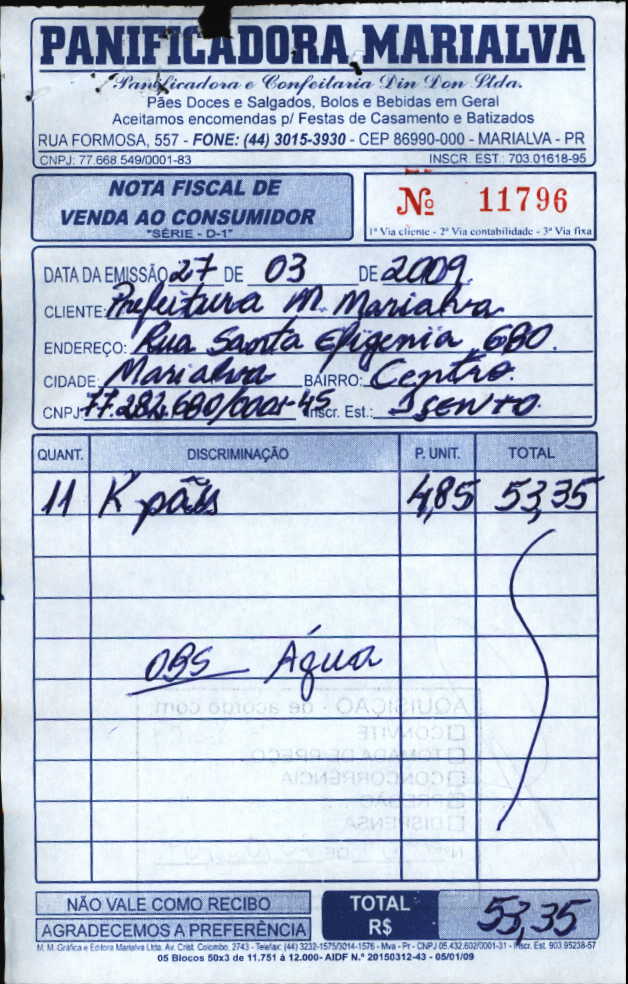 PANIFICADORA MARIALVA
Panificadora e Confeitaria Din Don Ltda.
Pães Doces e Salgados, Bolos e Bebidas em Geral
Aceitamos encomendas p/ Festas de Casamento e Batizados
RUA FORMOSA, 557 - FONE: (44) 3015-3930 - CEP 86990-000 - MARIALVA - PR
CNPJ: 77.668.549/0001-83 INSCR. EST.: 703.01618-95
NOTA FISCAL DE
VENDA AO CONSUMIDOR
"SÉRIE - D-1"
Nº 11796
1ª Via cliente - 2ª Via contabilidade - 3ª Via fixa
DATA DA EMISSÃO 27 DE 03 DE 2009
CLIENTE: Prefeitura M. Marialva
ENDEREÇO: Rua Santa Efigenia, 680.
CIDADE: Marialva BAIRRO: Centro.
CNPJ: 77.282.680/0001-45 Inscr. Est.: ISENTO.
QUANT. DISCRIMINAÇÃO P. UNIT. TOTAL
11 K pães 4,85 53,35
OBS Água
AQUISIÇÃO - de acordo com
CONVITE
TOMADA DE PREÇO
CONCORRÊNCIA
PREGÃO
DISPENSA
NÃO VALE COMO RECIBO
AGRADECEMOS A PREFERÊNCIA
TOTAL R$ 53,35
M. M. Gráfica e Editora Marialva Ltda. Av. Crist. Colombo, 2743 - Telefax: (44) 3232-1575/3014-1576 - Mva - Pr - CNPJ 05.432.602/0001-31 - Inscr. Est. 903.95238-57
05 Blocos 50x3 de 11.751 à 12.000- AIDF N.º 20150312-43 - 05/01/09